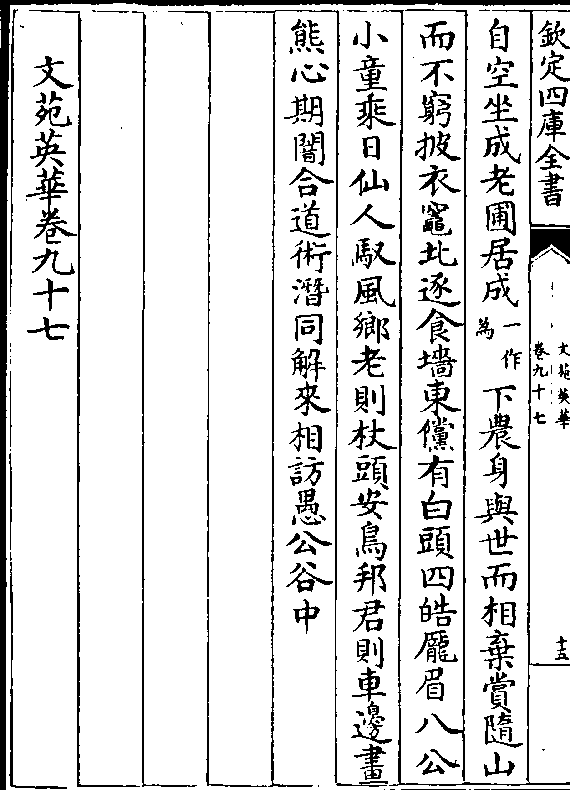 欽定四庫全書
文苑英華
卷九十七
十五
自空坐成老圃居成一作為下農身與世而相棄賞隨山
而不窮披衣竈北逐食墻東儻有白頭四皓龎眉八公
小童乘日仙人馭風鄉老則杖頭安鳥邦君則車邊畫
熊心期闇合道術潛同解來相訪愚公谷中
文苑英華卷九十七